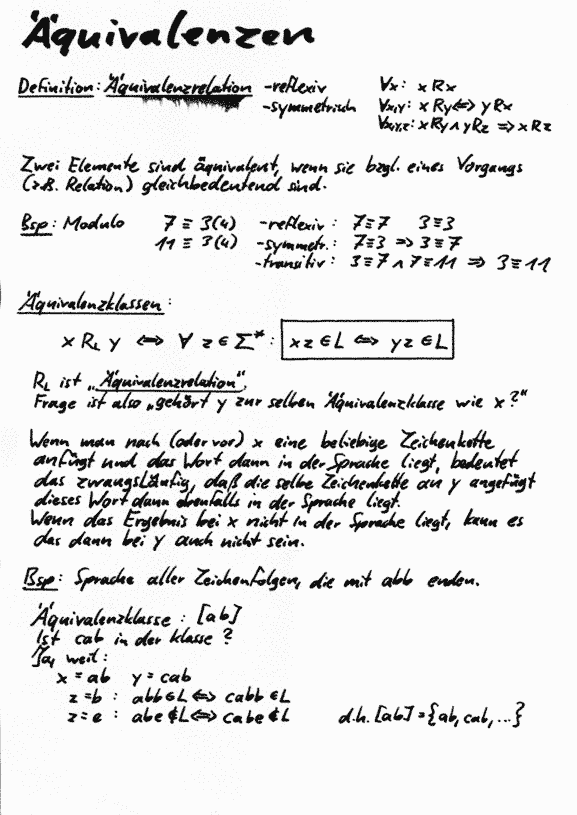 Äquivalenzen
Definition: Äquivalenzrelation -reflexiv ∀x: xRx
-symmetrisch ∀x,y: xRy ⇔ yRx
∀x,y,z: xRy ∧ yRz ⇒ xRz
Zwei Elemente sind äquivalent, wenn sie bzgl. eines Vorgangs
(z.B. Relation) gleichbedeutend sind.
Bsp: Modulo 7 ≡ 3(4) -reflexiv: 7≡7 3≡3
11 ≡ 3(4) -symmetr.: 7≡3 ⇒ 3≡7
-transitiv: 3≡7 ∧ 7≡11 ⇒ 3≡11
Äquivalenzklassen:
x R_L y ⇔ ∀ z ∈ Σ*: xz ∈ L ⇔ yz ∈ L
R_L ist „Äquivalenzrelation“.
Frage ist also „gehört y zur selben Äquivalenzklasse wie x?“
Wenn man nach (oder vor) x eine beliebige Zeichenkette
anfügt und das Wort dann in der Sprache liegt, bedeutet
das zwangsläufig, daß die selbe Zeichenkette an y angefügt
dieses Wort dann ebenfalls in der Sprache liegt.
Wenn das Ergebnis bei x nicht in der Sprache liegt, kann es
das dann bei y auch nicht sein.
Bsp: Sprache aller Zeichenfolgen, die mit abb enden.
Äquivalenzklasse: [ab]
Ist cab in der Klasse?
Ja, weil:
x = ab y = cab
z = b: abb ∈ L ⇔ cabb ∈ L
z = e: abe ∉ L ⇔ cabe ∉ L d.h. [ab] = {ab, cab, ...}